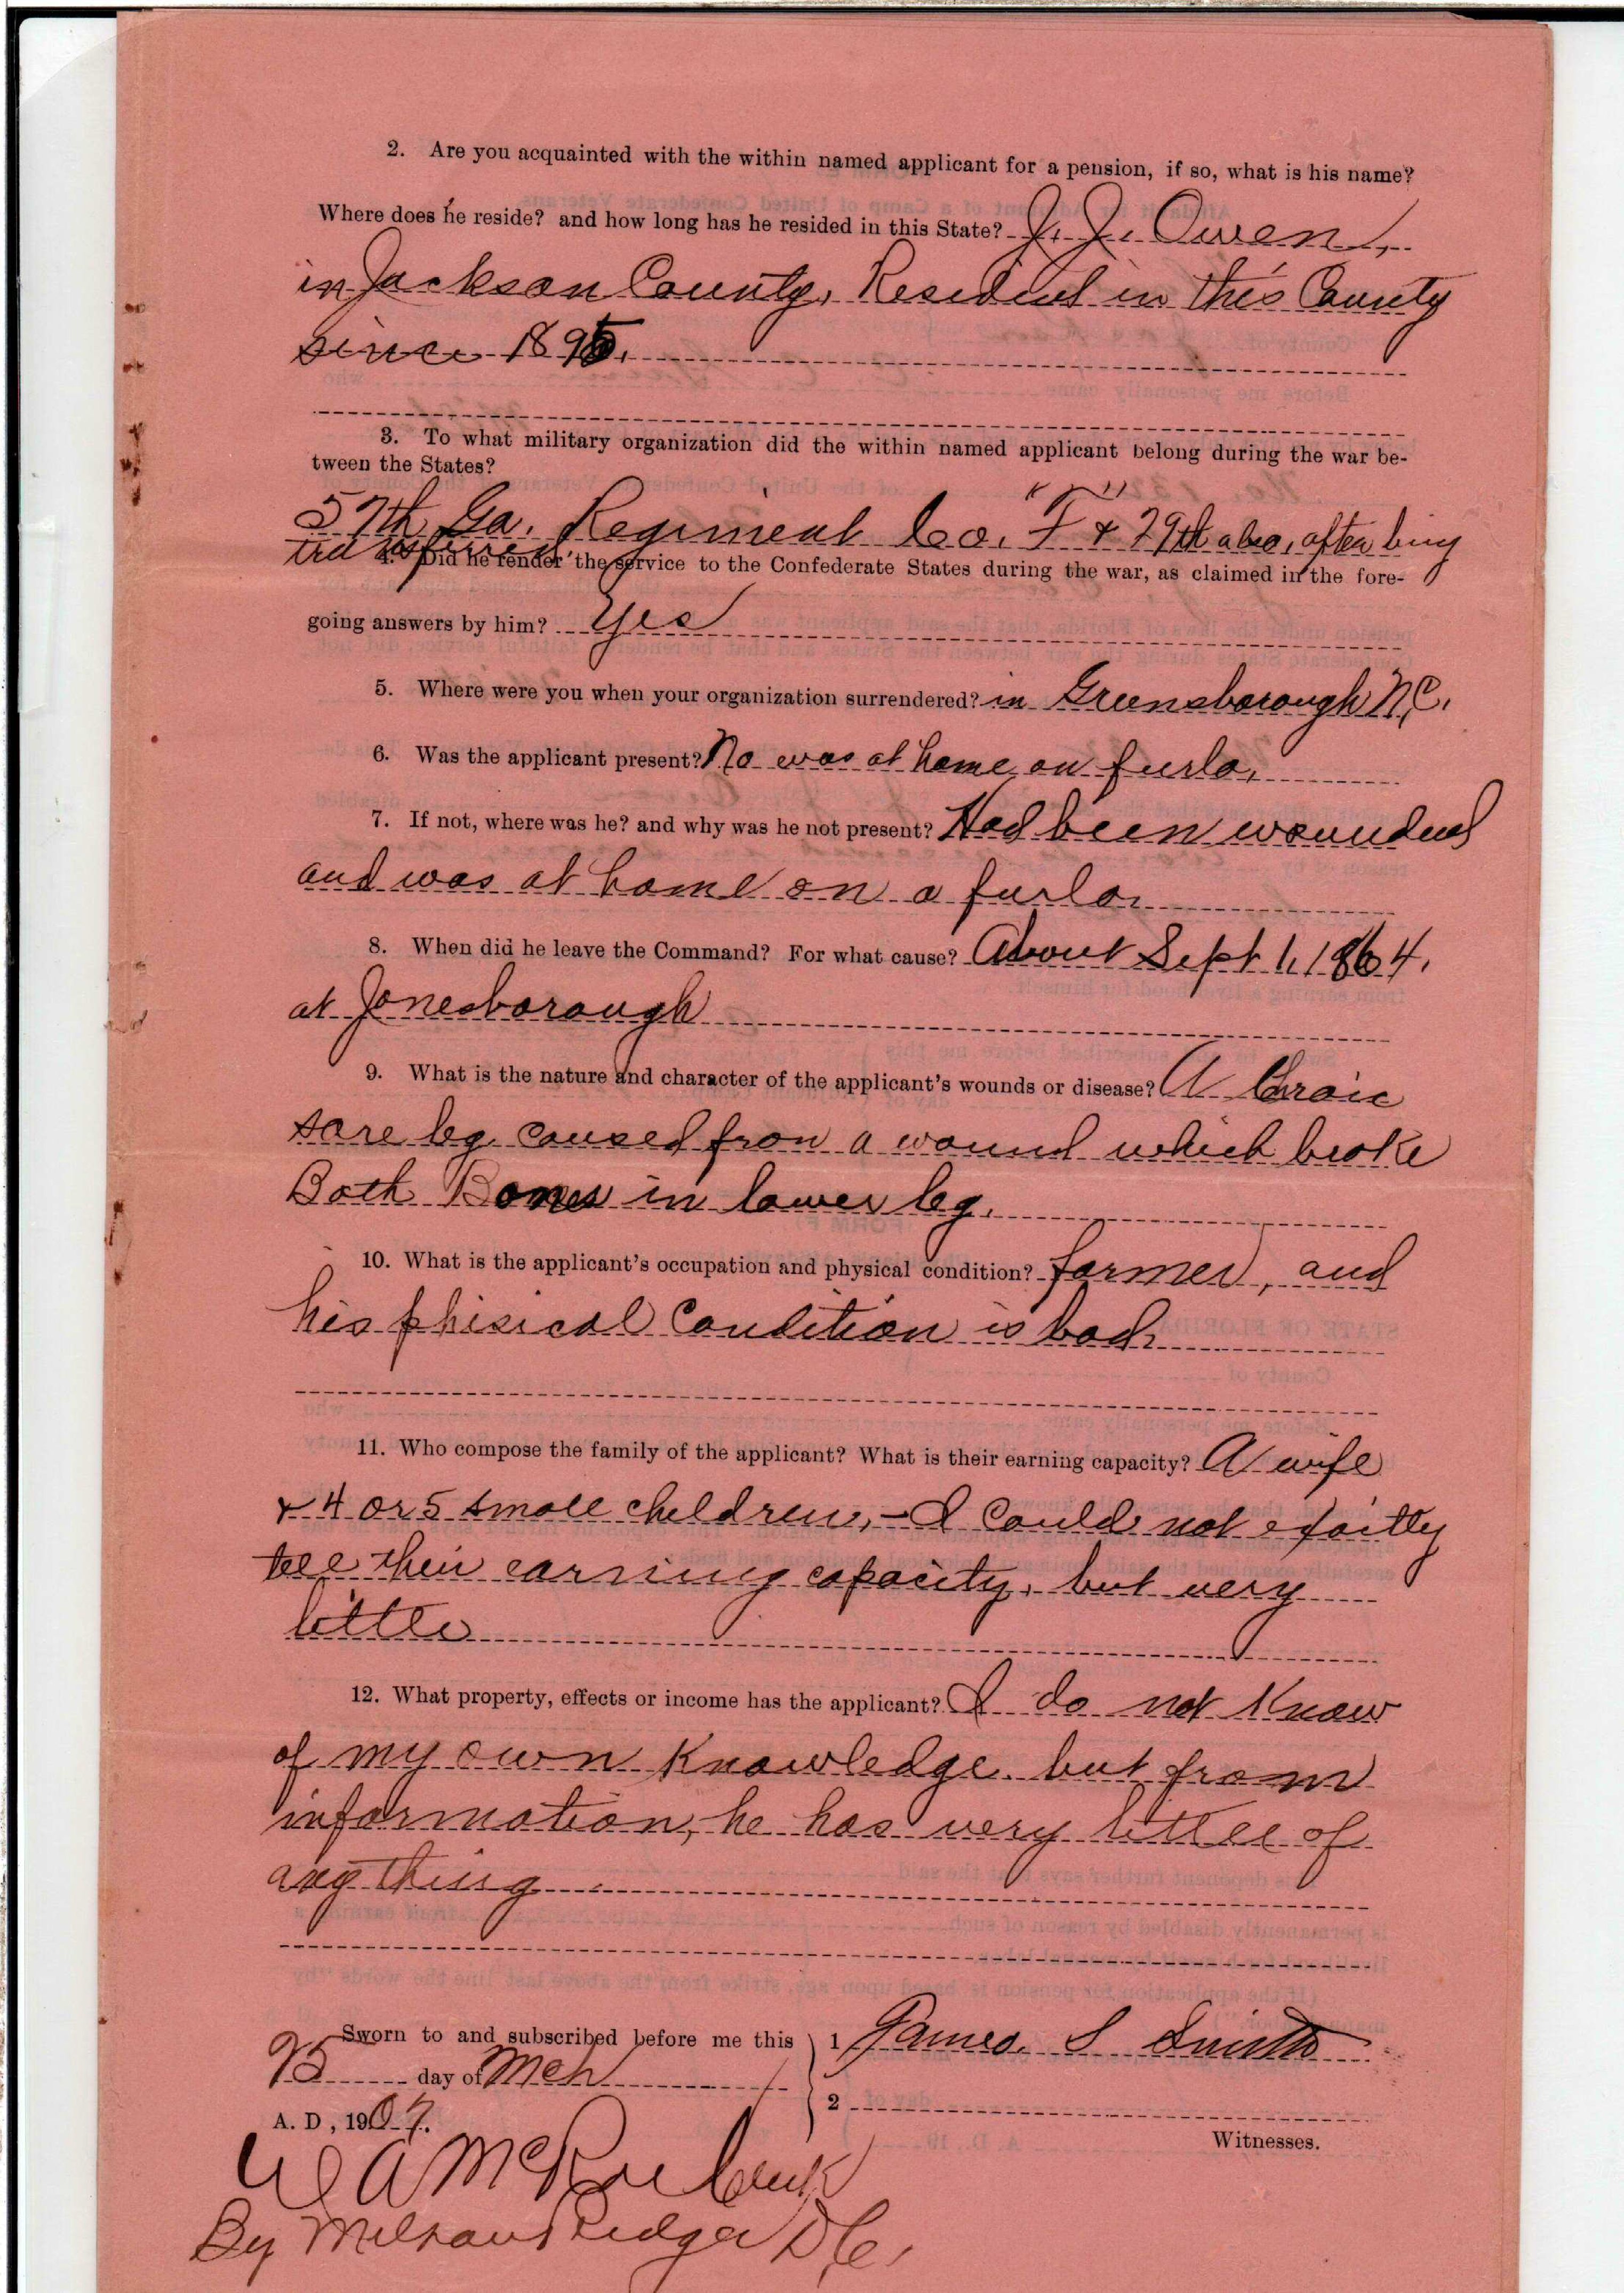 2. Are you acquainted with the within named applicant for a pension, if so, what is his name?
Where does he reside? and how long has he resided in this State? J. J. Owen,
in Jackson County, Resident in this County
since 1895.
3. To what military organization did the within named applicant belong during the war be-
tween the States?
57th Ga. Regiment Co. "F" & 29th also, after being
transferred,
4. Did he render the service to the Confederate States during the war, as claimed in the fore-
going answers by him? Yes
5. Where were you when your organization surrendered? in Greensborough N.C.
6. Was the applicant present? No was at home on furlo.
7. If not, where was he? and why was he not present? Had been wounded
and was at home on a furlo.
8. When did he leave the Command? For what cause? About Sept 1, 1864,
at Jonesborough
9. What is the nature and character of the applicant's wounds or disease? A Chroic
sore leg caused from a wound which broke
Both Bones in lower leg.
10. What is the applicant's occupation and physical condition? farmer, and
his phisical Condition is bad.
11. Who compose the family of the applicant? What is their earning capacity? A wife
& 4 or 5 small children, - I could not exactly
tell their earning capacity, but very
little
12. What property, effects or income has the applicant? I do not Know
of my own Knowledge. but from
information, he has very little of
anything
Sworn to and subscribed before me this
25 day of Mch
A. D, 1907.
1 James. S Smith
2
Witnesses.
W A McRae Clerk
By D.C.